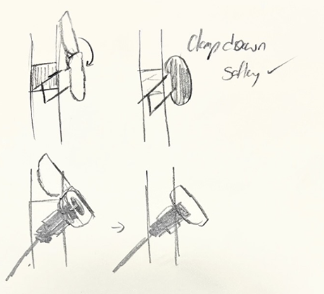 Clamp down
Safley ✓